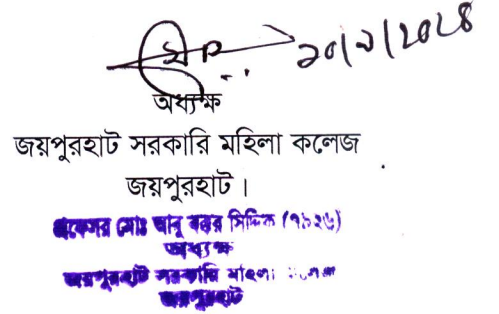 ২০/২/২০২৪
অধ্যক্ষ
জয়পুরহাট সরকারি মহিলা কলেজ
জয়পুরহাট।
প্রফেসর মোঃ আবু বক্কর সিদ্দিক (৭৯২৬)
অধ্যক্ষ
জয়পুরহাট সরকারি মহিলা কলেজ
জয়পুরহাট